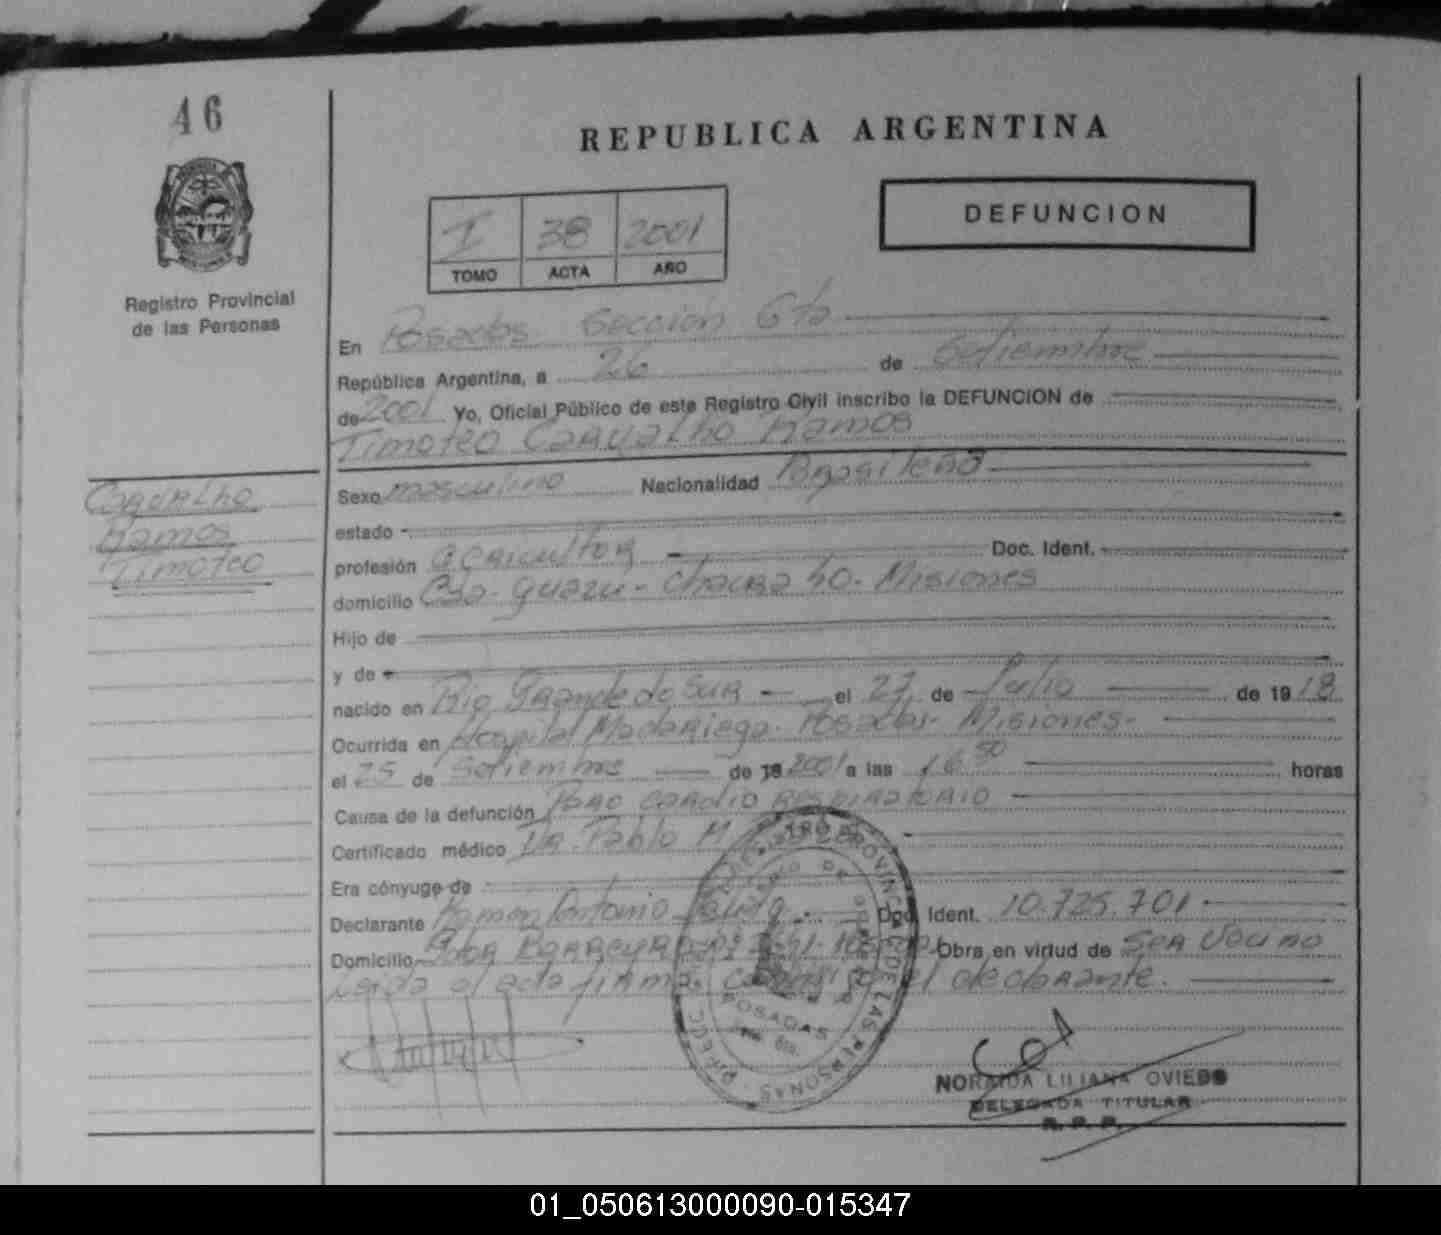 46
REPUBLICA ARGENTINA
DEFUNCION
I 38 2001
TOMO ACTA AÑO
Registro Provincial
de las Personas
En Posadas Sección 6ta
República Argentina, a 26 de Setiembre
de 2001 Yo, Oficial Público de este Registro Civil inscribo la DEFUNCION de
Timoteo Carvalho Ramos
Carvalho
Ramos
Timoteo
Sexo masculino Nacionalidad Brasileña
estado
profesión agricultor Doc. Ident.
domicilio Cta. Guazu - Misiones
Hijo de
y de
nacido en Rio Grande do Sur el 27 de Julio de 1918
Ocurrida en Hospital Madariaga. Posadas - Misiones -
el 25 de Setiembre de 19 2001 a las 16 50 horas
Causa de la defunción Paro cardio respiratorio
Certificado médico Dr. Pablo M.
Era cónyuge de
Declarante Ramon Antonio Doc. Ident. 10.725.701
Domicilio Obra en virtud de Ser Vecino
Leida el acta firma el declarante.
REGISTRO PROVINCIAL DE LAS PERSONAS
POSADAS
NORAIDA LILIANA OVIEDO
DELEGADA TITULAR
R. P. P.
01_050613000090-015347